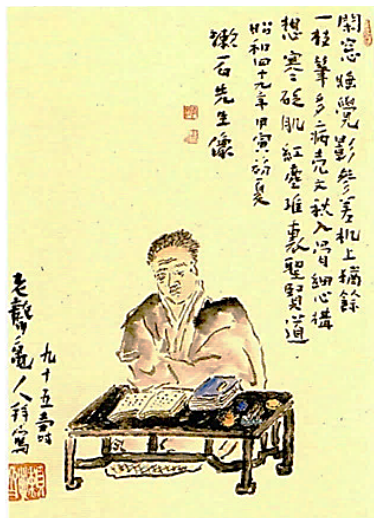 閑窓睡覺影參差机上猶餘
一枝筆多病売文秋入骨細心構
想寒砭肌紅塵堆裏聖賢道
昭和四十九年甲寅初夏
漱石先生像
九十五壽時
老聾亀人拝寫